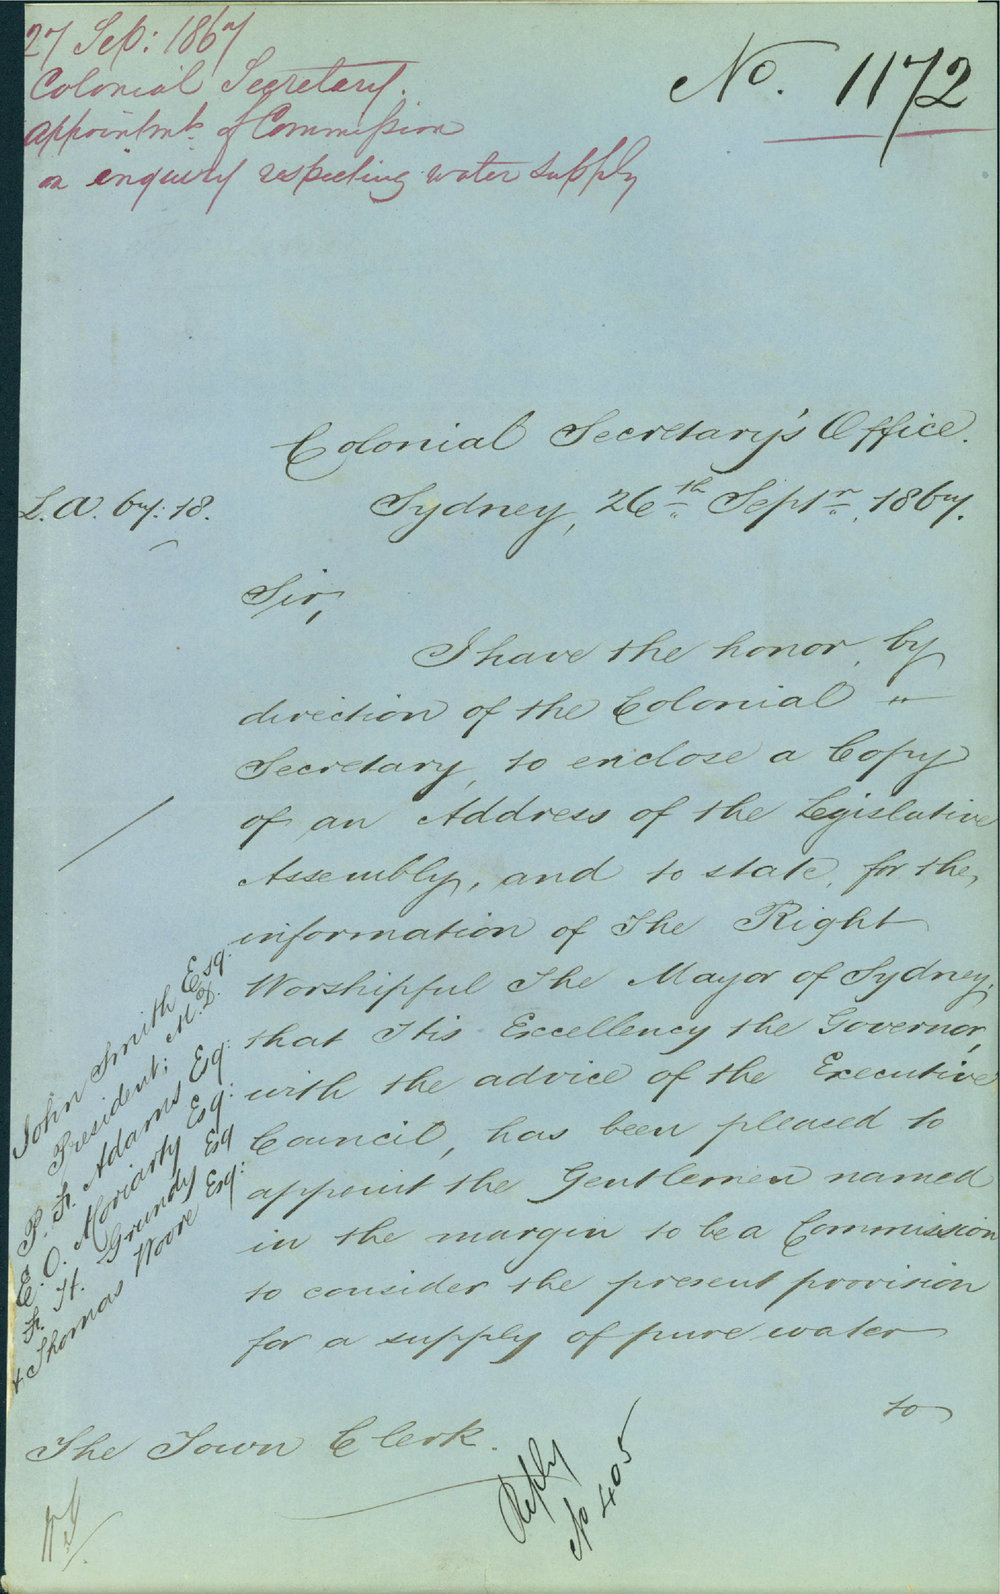 27 Sep: 1867
Colonial Secretary.
appointmt of Commission
on inquiry respecting water supply
No. 1172
Colonial Secretary's Office.
L.A. 67:18.
Sydney, 26th Septr. 1867.
Sir,
I have the honor, by
direction of the Colonial "
Secretary, to enclose a Copy
of an Address of the Legislative
Assembly, and to state, for the
information of The Right
Worshipful The Mayor of Sydney,
that His Excellency the Governor,
with the advice of the Executive
Council, has been pleased to
appoint the Gentlemen named
in the margin to be a Commission
to consider the present provision
for a supply of pure water
to
John Smith Esq.
President; M.D.
P. F. Adams Esq:
E. O. Moriarty Esq:
F. H. Grundy Esq
& Thomas Woore Esq:
The Town Clerk.
Reply
No 405